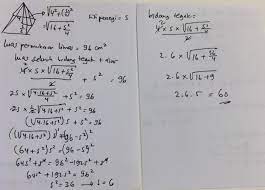 √(4² + (s/2)²)
√(16 + s²/4)
sisi persegi = s
luas permukaan limas = 96 cm²
luas seluruh bidang tegak + alas
4 × s × √(16 + s²/4) / 2 + s² = 96
2s √((4·16 + s²)/4) + s² = 96
2s · 1/2 √(4·16 + s²) + s² = 96
(√(4·16 + s²)) s + s² = 96
(√(64 + s²) s)² = (96 - s²)²
(64 + s²) s² = (96 - s²)²
64s² + s⁴ = 96² - 192s² + s⁴
64s² + 192s² = 96²
s² = 36 → s = 6
bidang tegak =
4 × s × √(16 + s²/4) / 2
2 . 6 × √(16 + 6²/4)
2 . 6 × √(16 + 9)
2 . 6 . 5 = 60